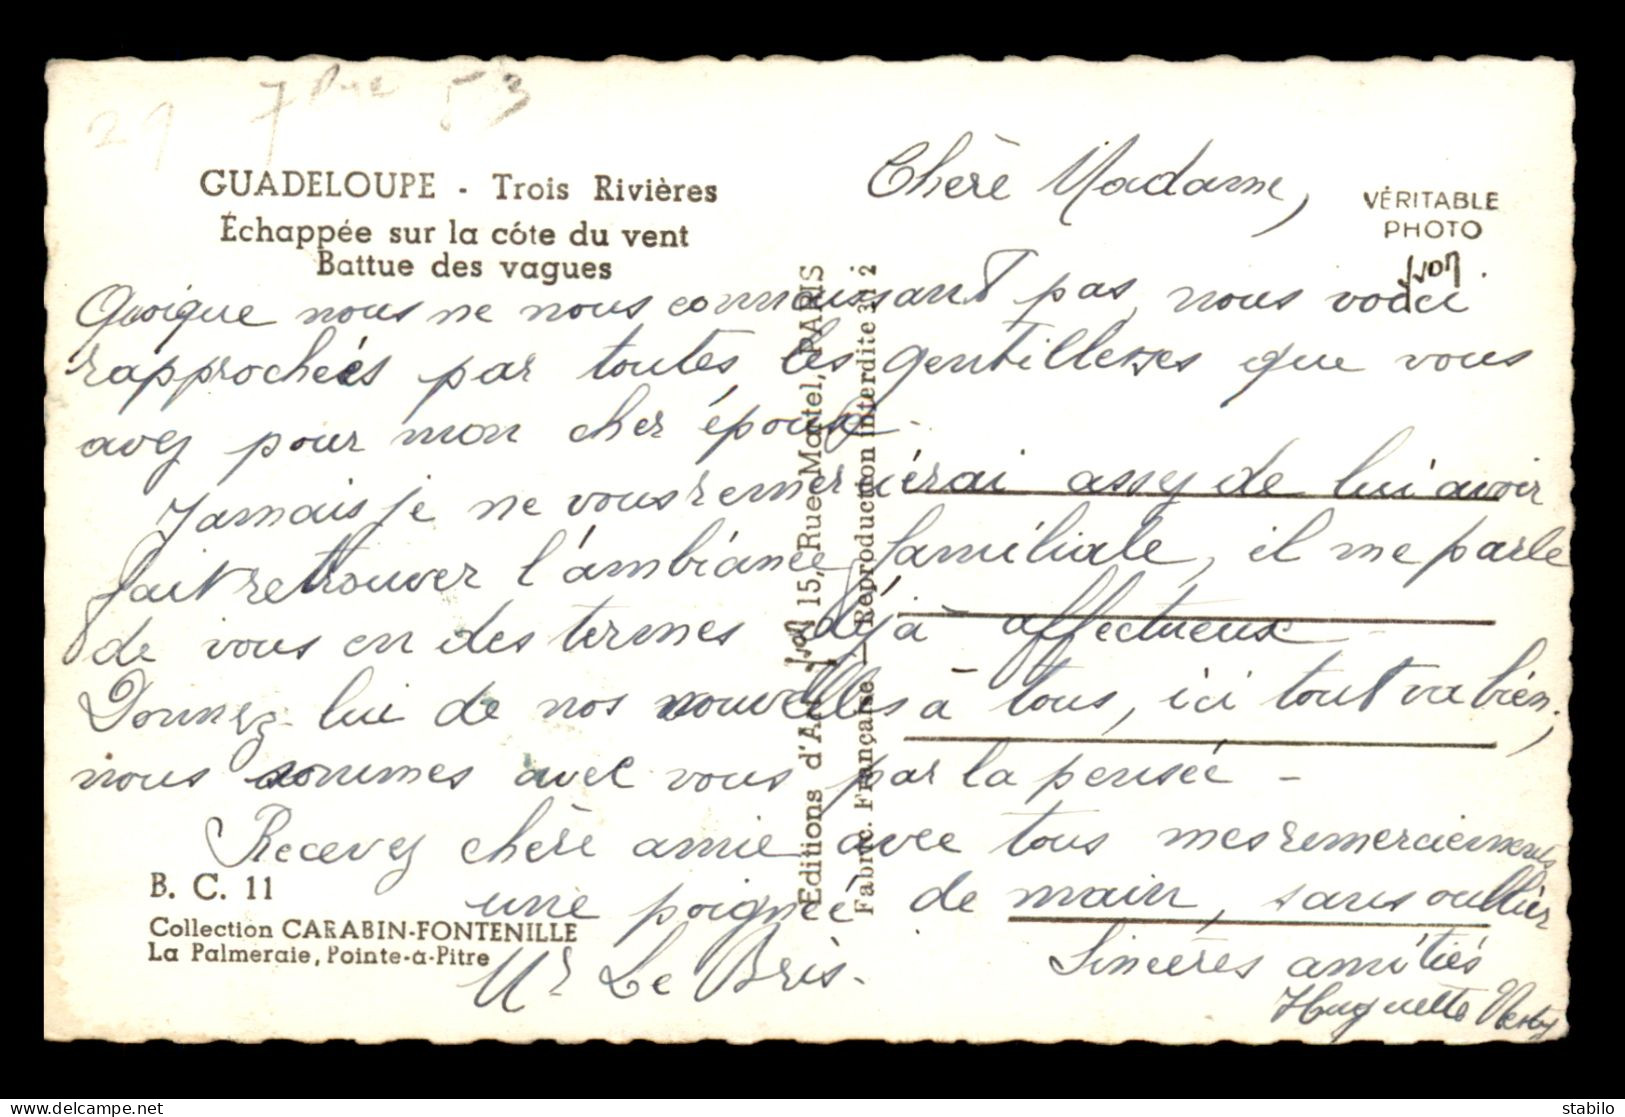 29 7bre 53
GUADELOUPE - Trois Rivières
Échappée sur la côte du vent
Battue des vagues
VÉRITABLE
PHOTO
Yvon
Chère Madame,
Quoique nous ne nous connaissant pas, nous voici
rapprochées par toutes les gentillesses que vous
avez pour mon cher époux.
Jamais je ne vous remercierai assez de lui avoir
fait retrouver l'ambiance familiale, il me parle
de vous en des termes déjà affectueux
Donnez-lui de nos nouvelles à tous, ici tout va bien,
nous sommes avec vous par la pensée -
Recevez chère amie avec tous mes remerciements
une poignée de main, sans oublier
Mr Le Bris.
Sincères amitiés
Huguette
Editions d'Art Yvon 15, Rue Martel, PARIS
Fabric. Française - Reproduction interdite 3112
B. C. 11
Collection CARABIN-FONTENILLE
La Palmeraie, Pointe-à-Pitre
stabilo | delcampe.net